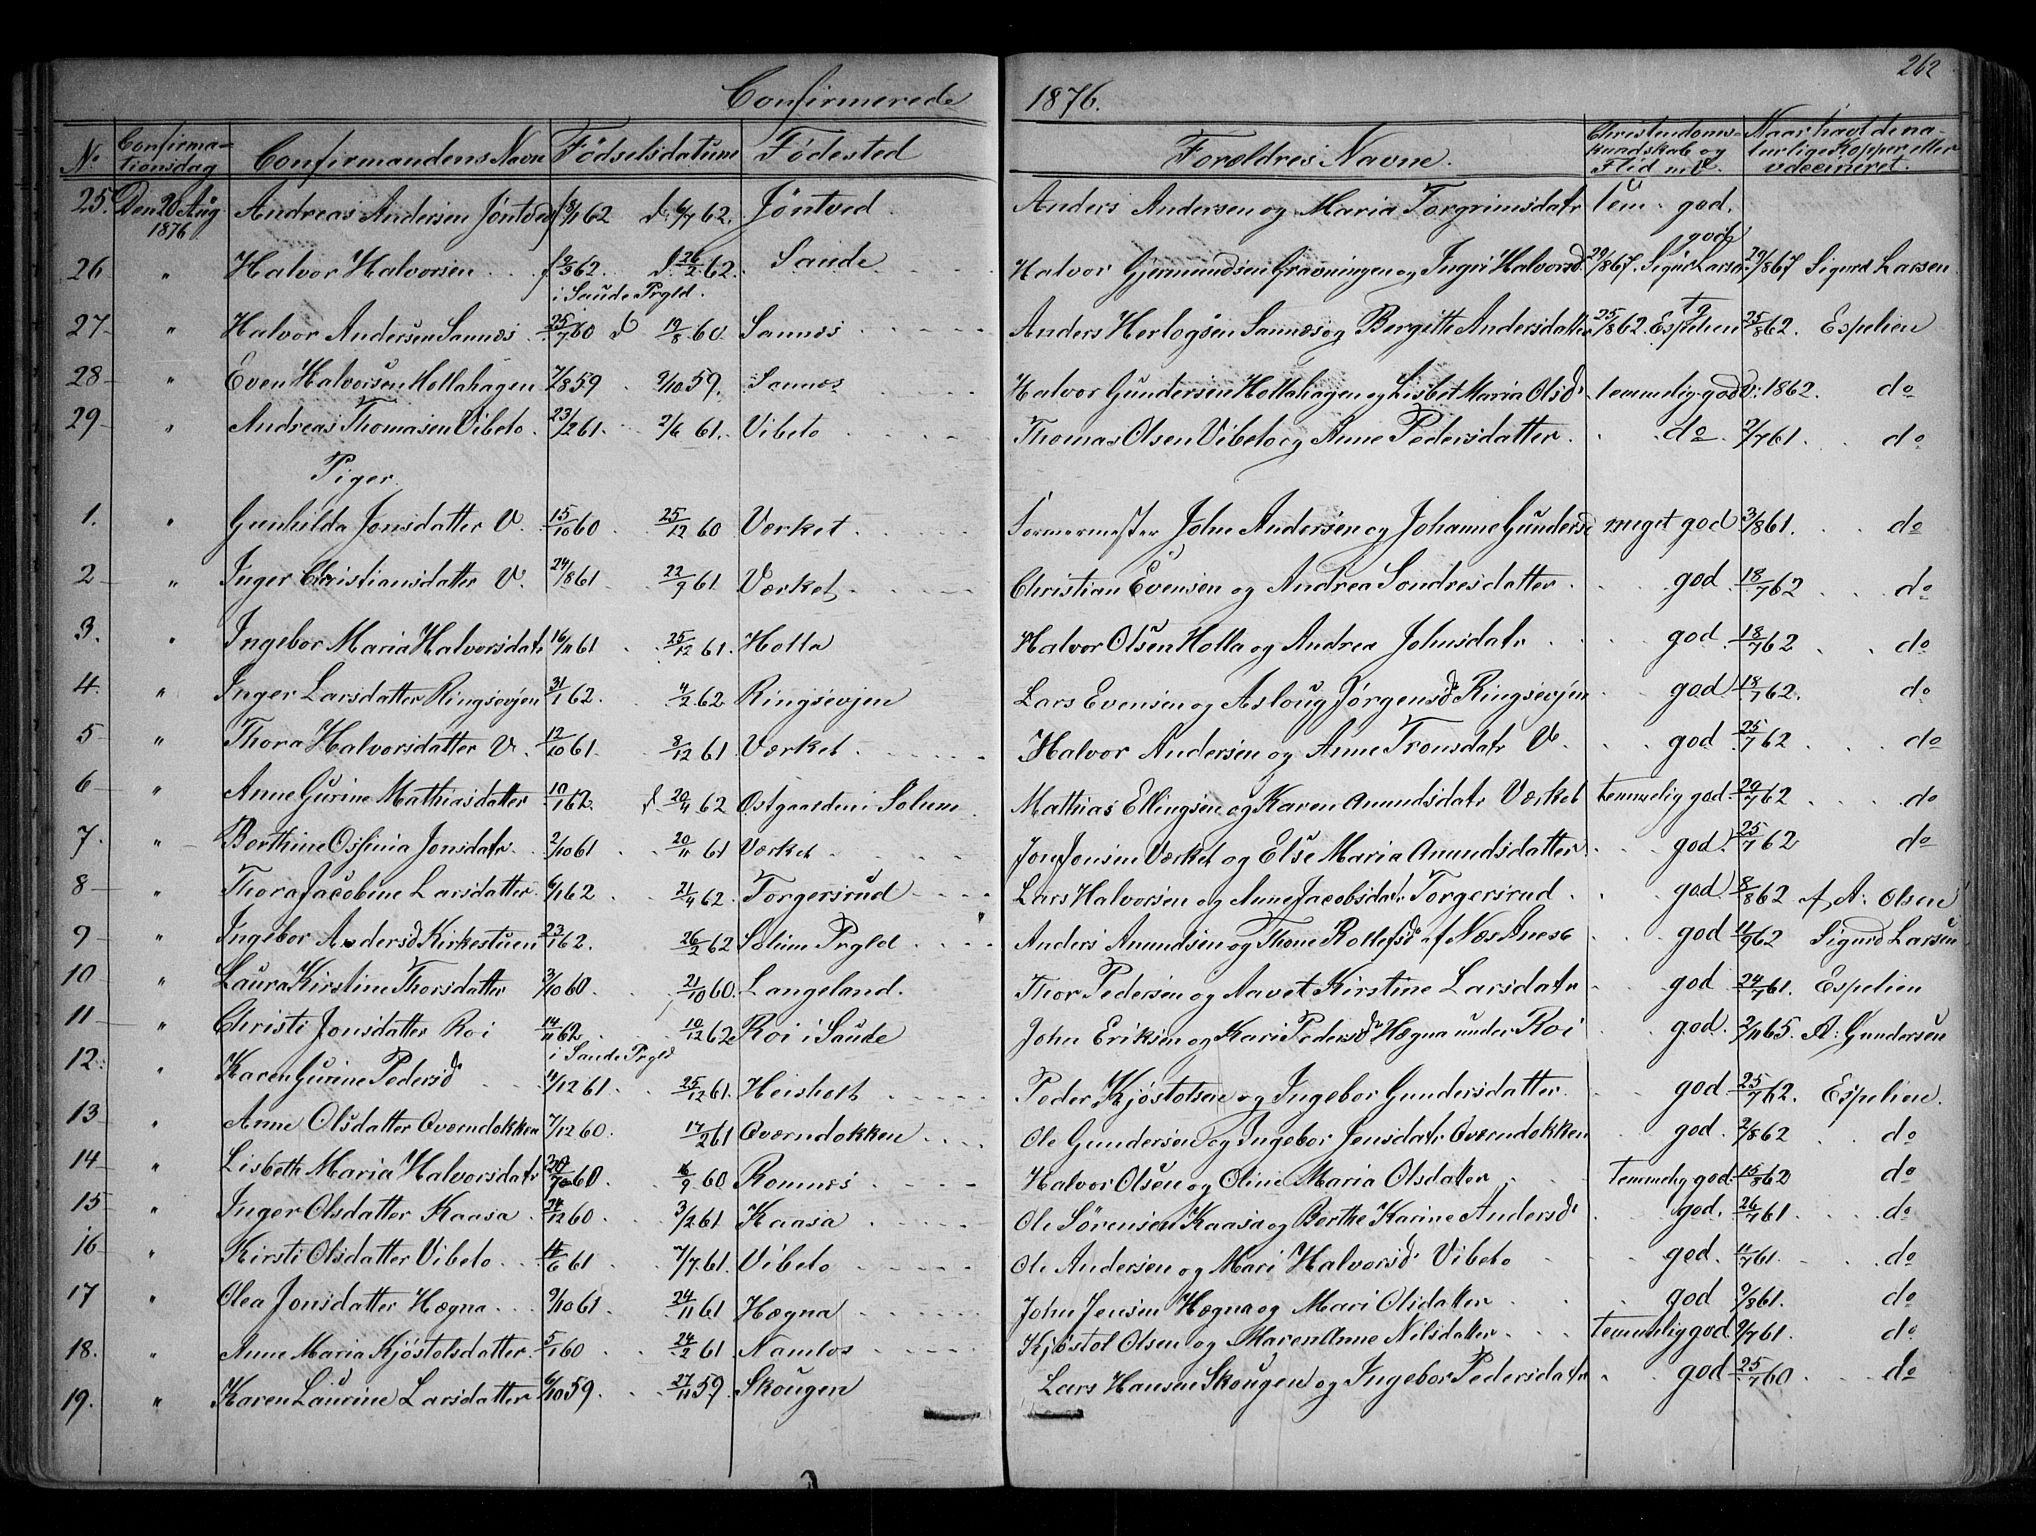 262
Confirmerede 1876.
No Confirmationsdag Confirmandens Navn Fødselsdatum Fødested Forældres Navne. Christendomskundskab og Flid m.V. Naar havt de naturlige Kopper eller vaccineret.
25. Den 20 Aug 1876 Andreas Andersen Jøntved f 8/1 62 d. 6/7 62. Jøntved. Anders Andersen og Maria Torgrimsdatr tem. god.
26 " Halvor Halvorsen f 2/3 62. d. 26/2 62. Saude Halvor Gjermundsen Gravningen og Ingri Halvorsd. god 29/867. Sigur Larsen 29/867 Sigurd Larsen
i Saude Prgld.
27 " Halvor Andersen Sannes 25/7 60 d 19/8 60. Sannes Anders Herlogsen Sannes og Bergitte Andersdatter 25/862. Espelien tg 25/862. Espelien
28 " Even Halvorsen Hollahagen 7/8 59 9/10 59. Sannes Halvor Gundersen Hollahagen og Lisbet Maria Olsd. temmelig god V: 1862. do
29 " Andreas Thomasen Vibeto 23/2 61. 2/6 61. Vibeto Thomas Olsen Vibeto og Anne Pedersdatter do 2/761. do
Piger.
1. " Gunhilda Jonsdatter V. 15/10 60 25/12 60 Værket Formermester John Andersen og Johanne Gundersd meget god 3/861. do
2 " Inger Christiansdatter V. 24/8 61 22/9 61 Værket Christian Evensen og Andrea Sondresdatter god 18/762 do
3. " Ingebor Maria Halvorsdatr 16/11 61 25/12 61. Holla Halvor Olsen Holla og Andrea Johnsdatr god 18/762 do
4. " Inger Larsdatter Ringsevjen 31/1 62. 4/2 62 Ringsevjen Lars Evensen og Aslaug Jørgensd Ringsevjen god 18/762. do
5 " Thora Halvorsdatter V. 12/10 61. 8/12 61 Værket Halvor Andersen og Anne Tronsdatr V. god 25/7 62 do
6 " Anne Gurine Mathiasdatter 10/1 62. d 20/4 62 Ostgaarden i Solum Mathias Ellingsen og Karen Amundsdatr Værket temmelig god 29/762 do
7. " Berthine Osfinia Jonsdatr. 2/10 61 20/11 61 Værket Jon Jonsen Værket og Else Maria Amundsdatter god 25/7 62 do
8 " Thora Jacobine Larsdatter 6/1 62 21/4 62. Torgersrud Lars Halvorsen og Anne Jacobsdatr Torgersrud god 8/862 af A: Olsen
9 " Ingebor Andersd Kirkestuen 23/1 62. 26/2 62 Solum Prgld Anders Amundsen og Thone Rollefsd af Næs Anex god 11/962 Sigurd Larsen
10 " Laura Kirstine Thorsdatter 3/10 60 21/10 60. Langeland. Thor Pedersen og Navet Kirstine Larsdatr god 24/761. Espelien
11 " Christi Jonsdatter Roi 14/11 62 10/12 62 Roi i Saude John Eriksen og Kari Pedersd Hægna under Roi god. 2/1165. A: Gundersen
i Saude Prgld
12. " Karen Gurine Pedersd 4/12 61 25/12 61. Heisholt Peder Kjøstolsen og Ingebor Gundersdatter god 25/762. Espelien.
13 " Anne Olsdatter Qværndokken 7/12 60. 17/2 61 Qværndokken Ole Gundersen og Ingebor Jensdatr Qværndokken god. 2/862 do
14 " Lisbeth Maria Halvorsdatr 20/7 60 16/9 60 Romnes Halvor Olsen og Oline Maria Olsdatter Temmelig god 15/862 do
15 " Inger Olsdatter Kaasa 24/12 60. 3/2 61 Kaasa Ole Sørensen Kaasa og Berthe Karine Andersd god. 26/761 do
16 " Kirsti Olsdatter Vibeto 14/6 61 7/7 61. Vibeto Ole Andersen og Mari Halvorsd Vibeto god. 11/761. do
17 " Olea Jonsdatter Hægna 9/10 61. 24/11 61 Hægna John Jensen Hægna og Mari Olsdatter god 9/861. do
18. " Anne Maria Kjøstolsdatter. 5/1 60 24/2 61 Namlos Kjøstol Olsen og Maren Anne Nilsdatter Temmelig god 9/761. do
19. " Karen Laurine Larsdatter 6/10 59. 27/11 59. Skougen Lars Hansen Skougen og Ingebor Pedersdatr god 25/760 do